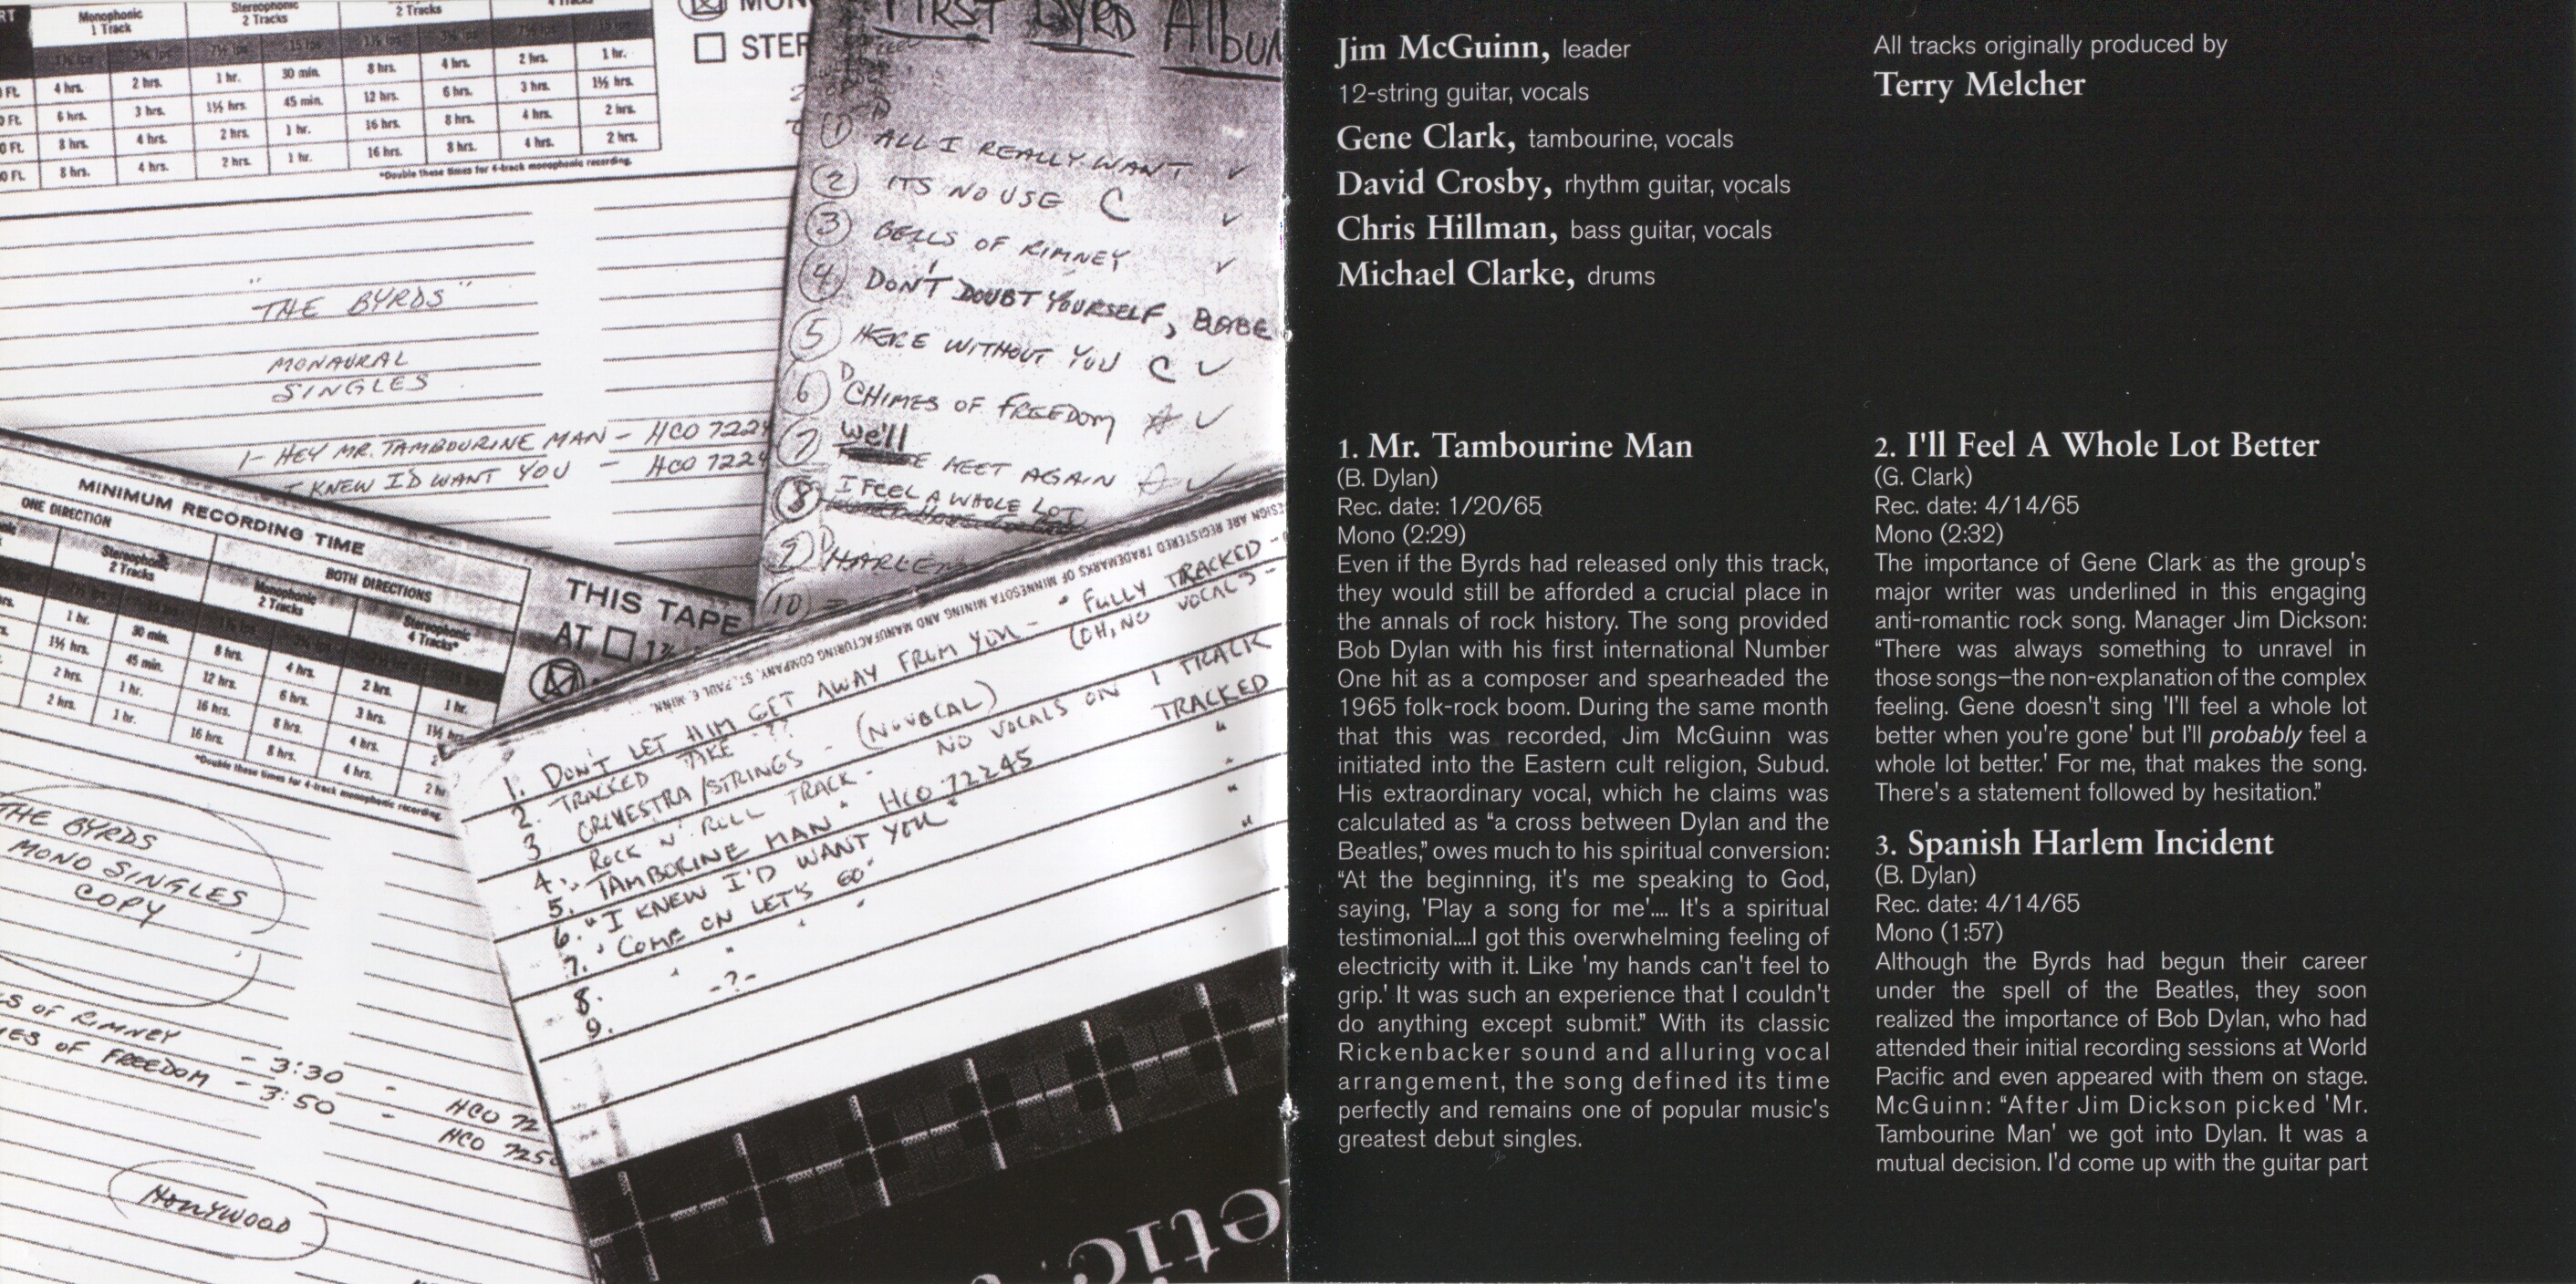 Monophonic
1 Track
Stereophonic
2 Tracks
2 Tracks
4 hrs. 2 hrs. 1 hr. 30 min. 8 hrs. 4 hrs. 2 hrs. 1 hr.
6 hrs. 3 hrs. 1½ hrs. 45 min. 12 hrs. 6 hrs. 3 hrs. 1½ hrs.
8 hrs. 4 hrs. 2 hrs. 1 hr. 16 hrs. 8 hrs. 4 hrs. 2 hrs.
8 hrs. 4 hrs. 2 hrs. 1 hr. 16 hrs. 8 hrs. 4 hrs. 2 hrs.
*Double these times for 4-track monophonic recording.
"THE BYRDS"
MONAURAL
SINGLES
1- HEY MR. TAMBOURINE MAN - HCO 7224
I KNEW I'D WANT YOU - HCO 7224
FIRST BYRD AlbUM
1 ALL I REALLY WANT
2 ITS NO USE C
3 BELLS OF RIMNEY
4 DON'T DOUBT YOURSELF, BABE
5 HERE WITHOUT YOU C
6 D CHIMES OF FREEDOM
7 we'll MEET AGAIN
8 I FEEL A WHOLE LOT
9 HARLEM
10
MINIMUM RECORDING TIME
ONE DIRECTION
BOTH DIRECTIONS
Stereophonic
2 Tracks
Monophonic
2 Tracks
Stereophonic
4 Tracks*
1 hr. 30 min. 8 hrs. 4 hrs. 2 hrs. 1 hr.
1½ hrs. 45 min. 12 hrs. 6 hrs. 3 hrs. 1½ hrs.
2 hrs. 1 hr. 16 hrs. 8 hrs. 4 hrs.
2 hrs. 1 hr. 16 hrs. 8 hrs. 4 hrs.
*Double these times for 4-track monophonic recording.
THIS TAPE
AT
DESIGN ARE REGISTERED TRADEMARKS OF MINNESOTA MINING AND MANUFACTURING COMPANY, ST. PAUL 6, MINN.
1. DON'T LET HIM GET AWAY FROM YOU - FULLY TRACKED -
(OH, NO VOCALS -
2. TRACKED TAKE -??
3 ORCHESTRA/STRINGS - (NO VOCAL)
4. ROCK N' ROLL TRACK - NO VOCALS ON 1 TRACK
5. "TAMBORINE MAN" HCO 72245 TRACKED
6. "I KNEW I'D WANT YOU" "
7. "COME ON LET'S GO"
8.
9. -?-
THE BYRDS
MONO SINGLES
COPY
S OF RIMNEY - 3:30 - HCO 72
ES OF FREEDOM - 3:50 - HCO 725
HOLLYWOOD
Jim McGuinn, leader
12-string guitar, vocals
Gene Clark, tambourine, vocals
David Crosby, rhythm guitar, vocals
Chris Hillman, bass guitar, vocals
Michael Clarke, drums
All tracks originally produced by
Terry Melcher
1. Mr. Tambourine Man
(B. Dylan)
Rec. date: 1/20/65
Mono (2:29)
Even if the Byrds had released only this track,
they would still be afforded a crucial place in
the annals of rock history. The song provided
Bob Dylan with his first international Number
One hit as a composer and spearheaded the
1965 folk-rock boom. During the same month
that this was recorded, Jim McGuinn was
initiated into the Eastern cult religion, Subud.
His extraordinary vocal, which he claims was
calculated as "a cross between Dylan and the
Beatles," owes much to his spiritual conversion:
"At the beginning, it's me speaking to God,
saying, 'Play a song for me'.... It's a spiritual
testimonial....I got this overwhelming feeling of
electricity with it. Like 'my hands can't feel to
grip.' It was such an experience that I couldn't
do anything except submit." With its classic
Rickenbacker sound and alluring vocal
arrangement, the song defined its time
perfectly and remains one of popular music's
greatest debut singles.
2. I'll Feel A Whole Lot Better
(G. Clark)
Rec. date: 4/14/65
Mono (2:32)
The importance of Gene Clark as the group's
major writer was underlined in this engaging
anti-romantic rock song. Manager Jim Dickson:
"There was always something to unravel in
those songs–the non-explanation of the complex
feeling. Gene doesn't sing 'I'll feel a whole lot
better when you're gone' but I'll probably feel a
whole lot better.' For me, that makes the song.
There's a statement followed by hesitation."
3. Spanish Harlem Incident
(B. Dylan)
Rec. date: 4/14/65
Mono (1:57)
Although the Byrds had begun their career
under the spell of the Beatles, they soon
realized the importance of Bob Dylan, who had
attended their initial recording sessions at World
Pacific and even appeared with them on stage.
McGuinn: "After Jim Dickson picked 'Mr.
Tambourine Man' we got into Dylan. It was a
mutual decision. I'd come up with the guitar part